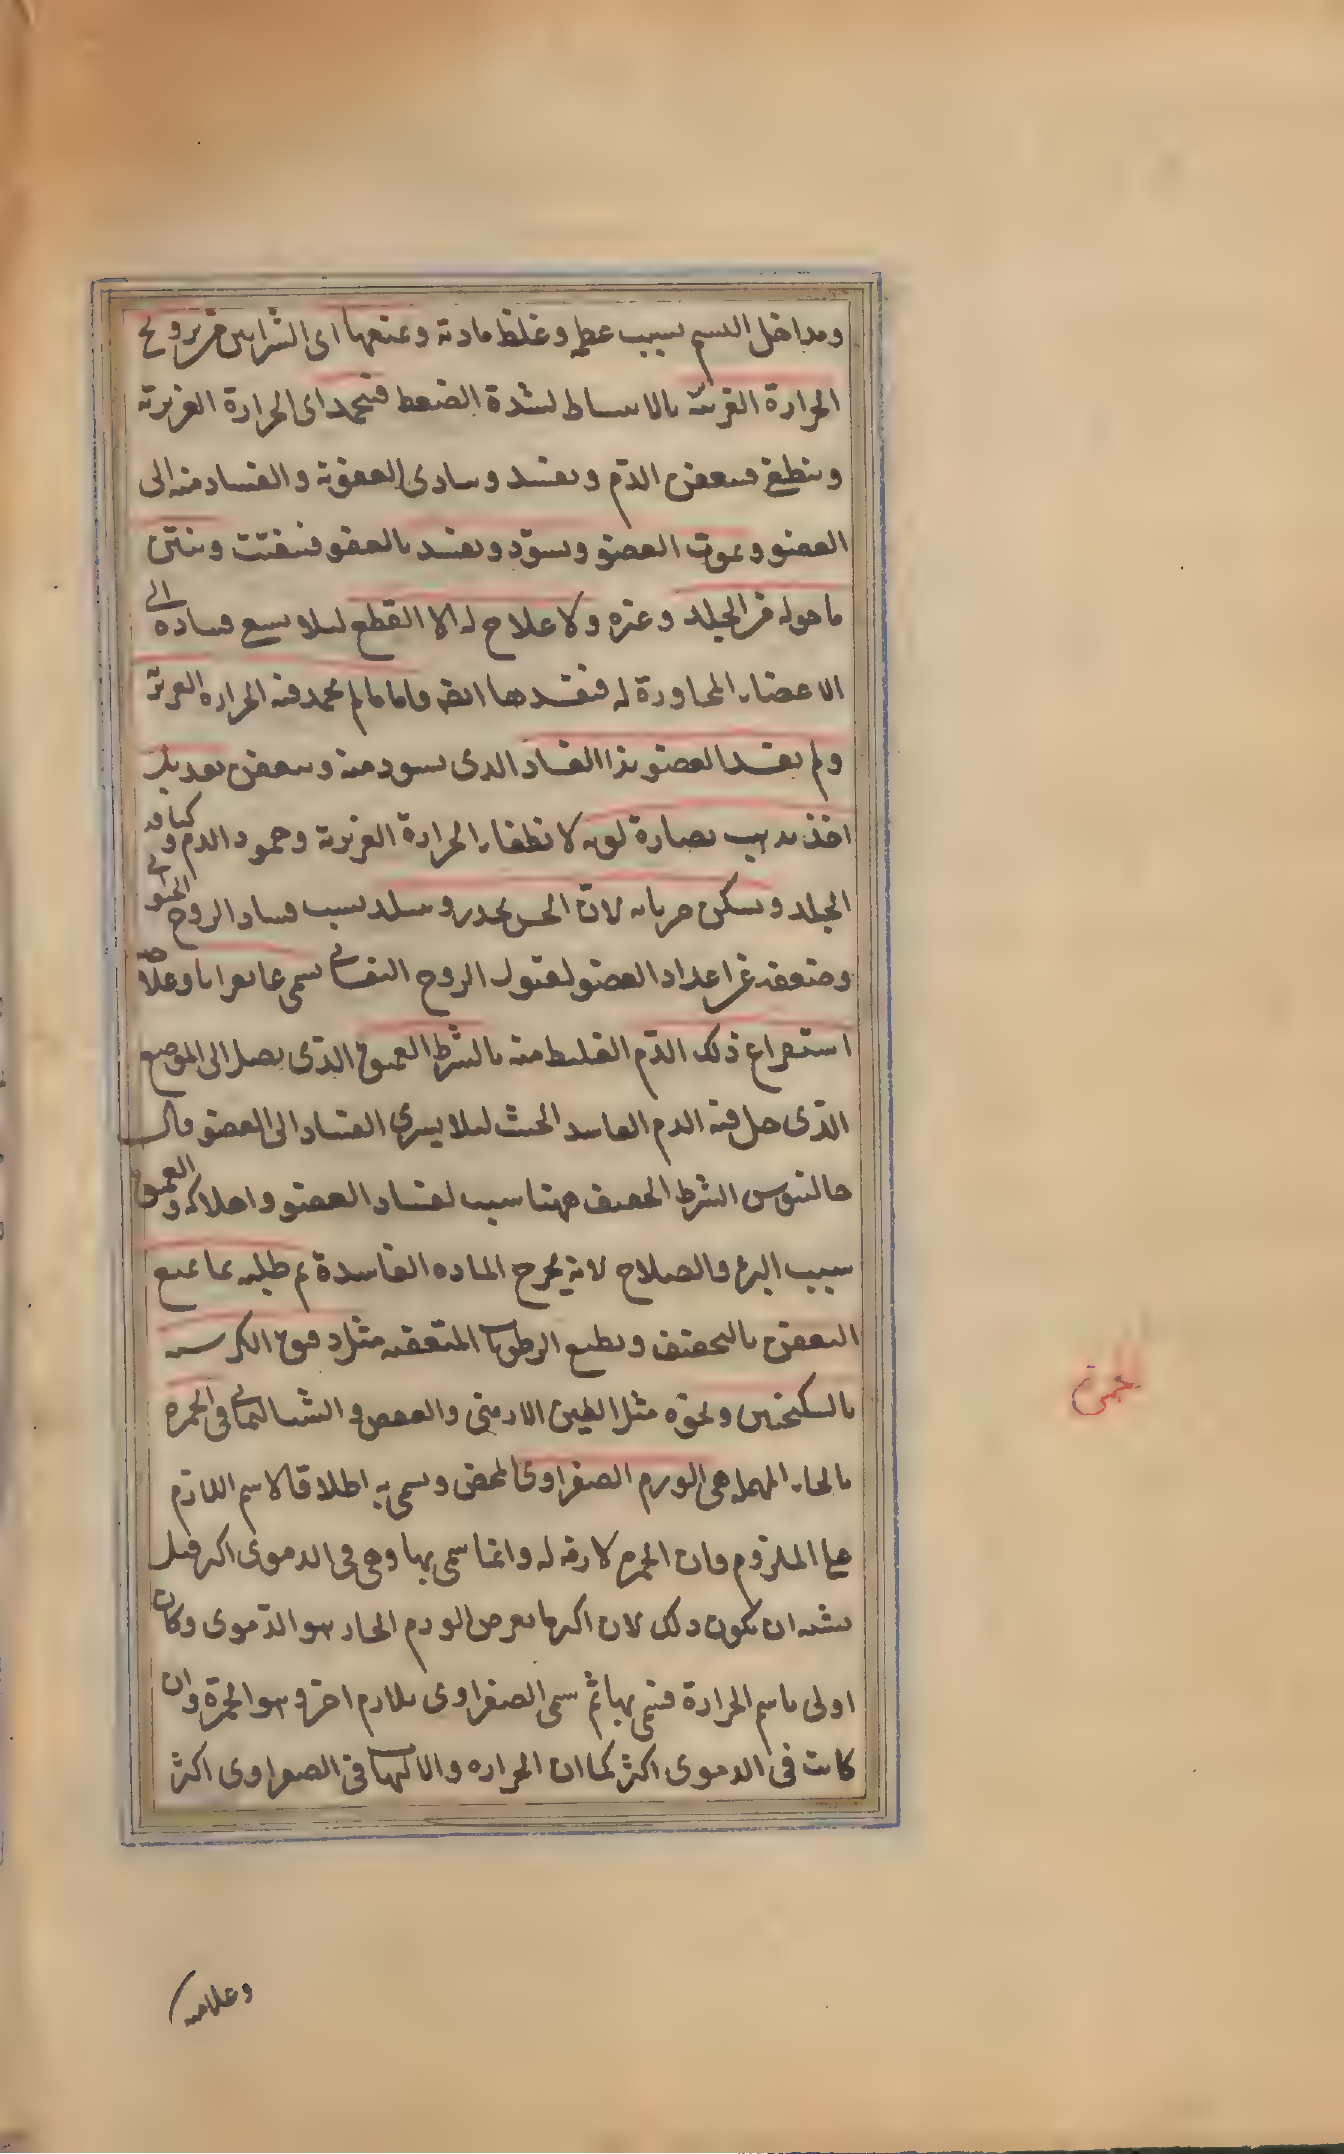 ومداخل النسيم بسبب عظمه وغلظ مادته ويمنعها اى الشرايين من ترويح
الحرارة الغريزية بالانبساط لشدة الضغط فتخمد اى الحرارة الغريزية
وينطفى فيتعفن الدم ويفسد ويتادى العفونة والفساد منه الى
العضو ويموت العضو ويسود ويفسد بالعفو فيتفتت وينتن
ما حوله من الجلد وغيره ولا علاج له الا القطع لئلا يسع فساده الى
الاعضاء المجاورة له فيفسدها ايضا واما ما لم يخمد فيه الحراره الغريزية
ولم يفسد العضو بذا الفساد الذى يسود منه ويتعفن بعد بل
اخذ يذهب نضارة لونه لانطفاء الحرارة الغريزية وجمود الدم وكثافة
الجلد ويسكن ضربانه لان الحس يخدر ويتبلد بسبب فساد الروح الحيوانى
وضعفه عن اعداد العضو لقبول الروح النفسانى يسمى غانغرانا وعلاجه
استفراغ ذلك الدم الغليظ منه بالشرط العميق الذى يصل الى الموضع
الذى حصل فيه الدم الفاسد الخبيث لئلا يسرى الفساد الى العضو قال
جالينوس الشرط الخفيف ههنا سبب لفساد العضو واهلاكه والعميق
سبب البرء والصلاح لانه يخرج الماده الفاسدة ثم طليه بما يمنع
التعفن بالتجفيف ويقطع الرطوبات المتعفنه مثل دقيق الكرسنه
بالسكنجبين ونحوه مثل الطين الارمنى والعفص والشب اليمانى فى الحمره
بالحاء المهملة هى الورم الصفراوى المحض وسمى به اطلاقا لاسم اللازم
على الملزوم فان الحمرة لازمة له وانما سمى بها وهى فى الدموى اكثر قيل
يشبه ان يكون ذلك لان اكثر ما يعرض الورم الحار هو الدموى وكان
اولى باسم الحرارة فسمى بها ثم سمى الصفراوى بلازم اخر وهو الحمرة وان
كانت فى الدموى اكثر كما ان الحراره والالتهاب فى الصفراوى اكثر
الحمرة
وعلامته